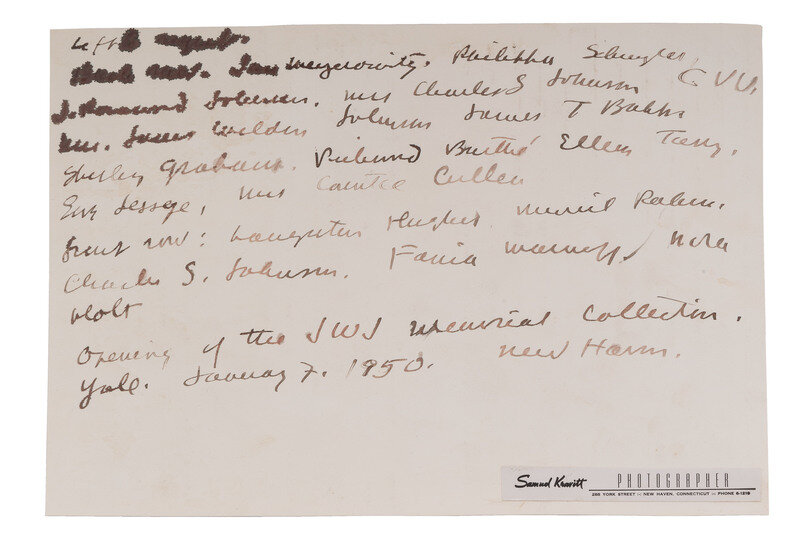 Left to right.
Back row. Jan Meyerowitz. Philippa Schuyler, CVV.
J. Rosamund Johnson. Mrs Charles S Johnson
Mrs. James Weldon Johnson James T Babb.
Shirley Graham. Richmond Barthé Ellen Tarry.
Eva Jessye, Mrs Countee Cullen
front row: Langston Hughes. Muriel Rahn.
Charles S. Johnson. Fania Marinoff, Nora
Holt
Opening of the JWJ Memorial Collection.
Yale. January 7. 1950. New Haven.
Samuel Kravitt PHOTOGRAPHER
265 YORK STREET NEW HAVEN, CONNECTICUT PHONE 6-1219